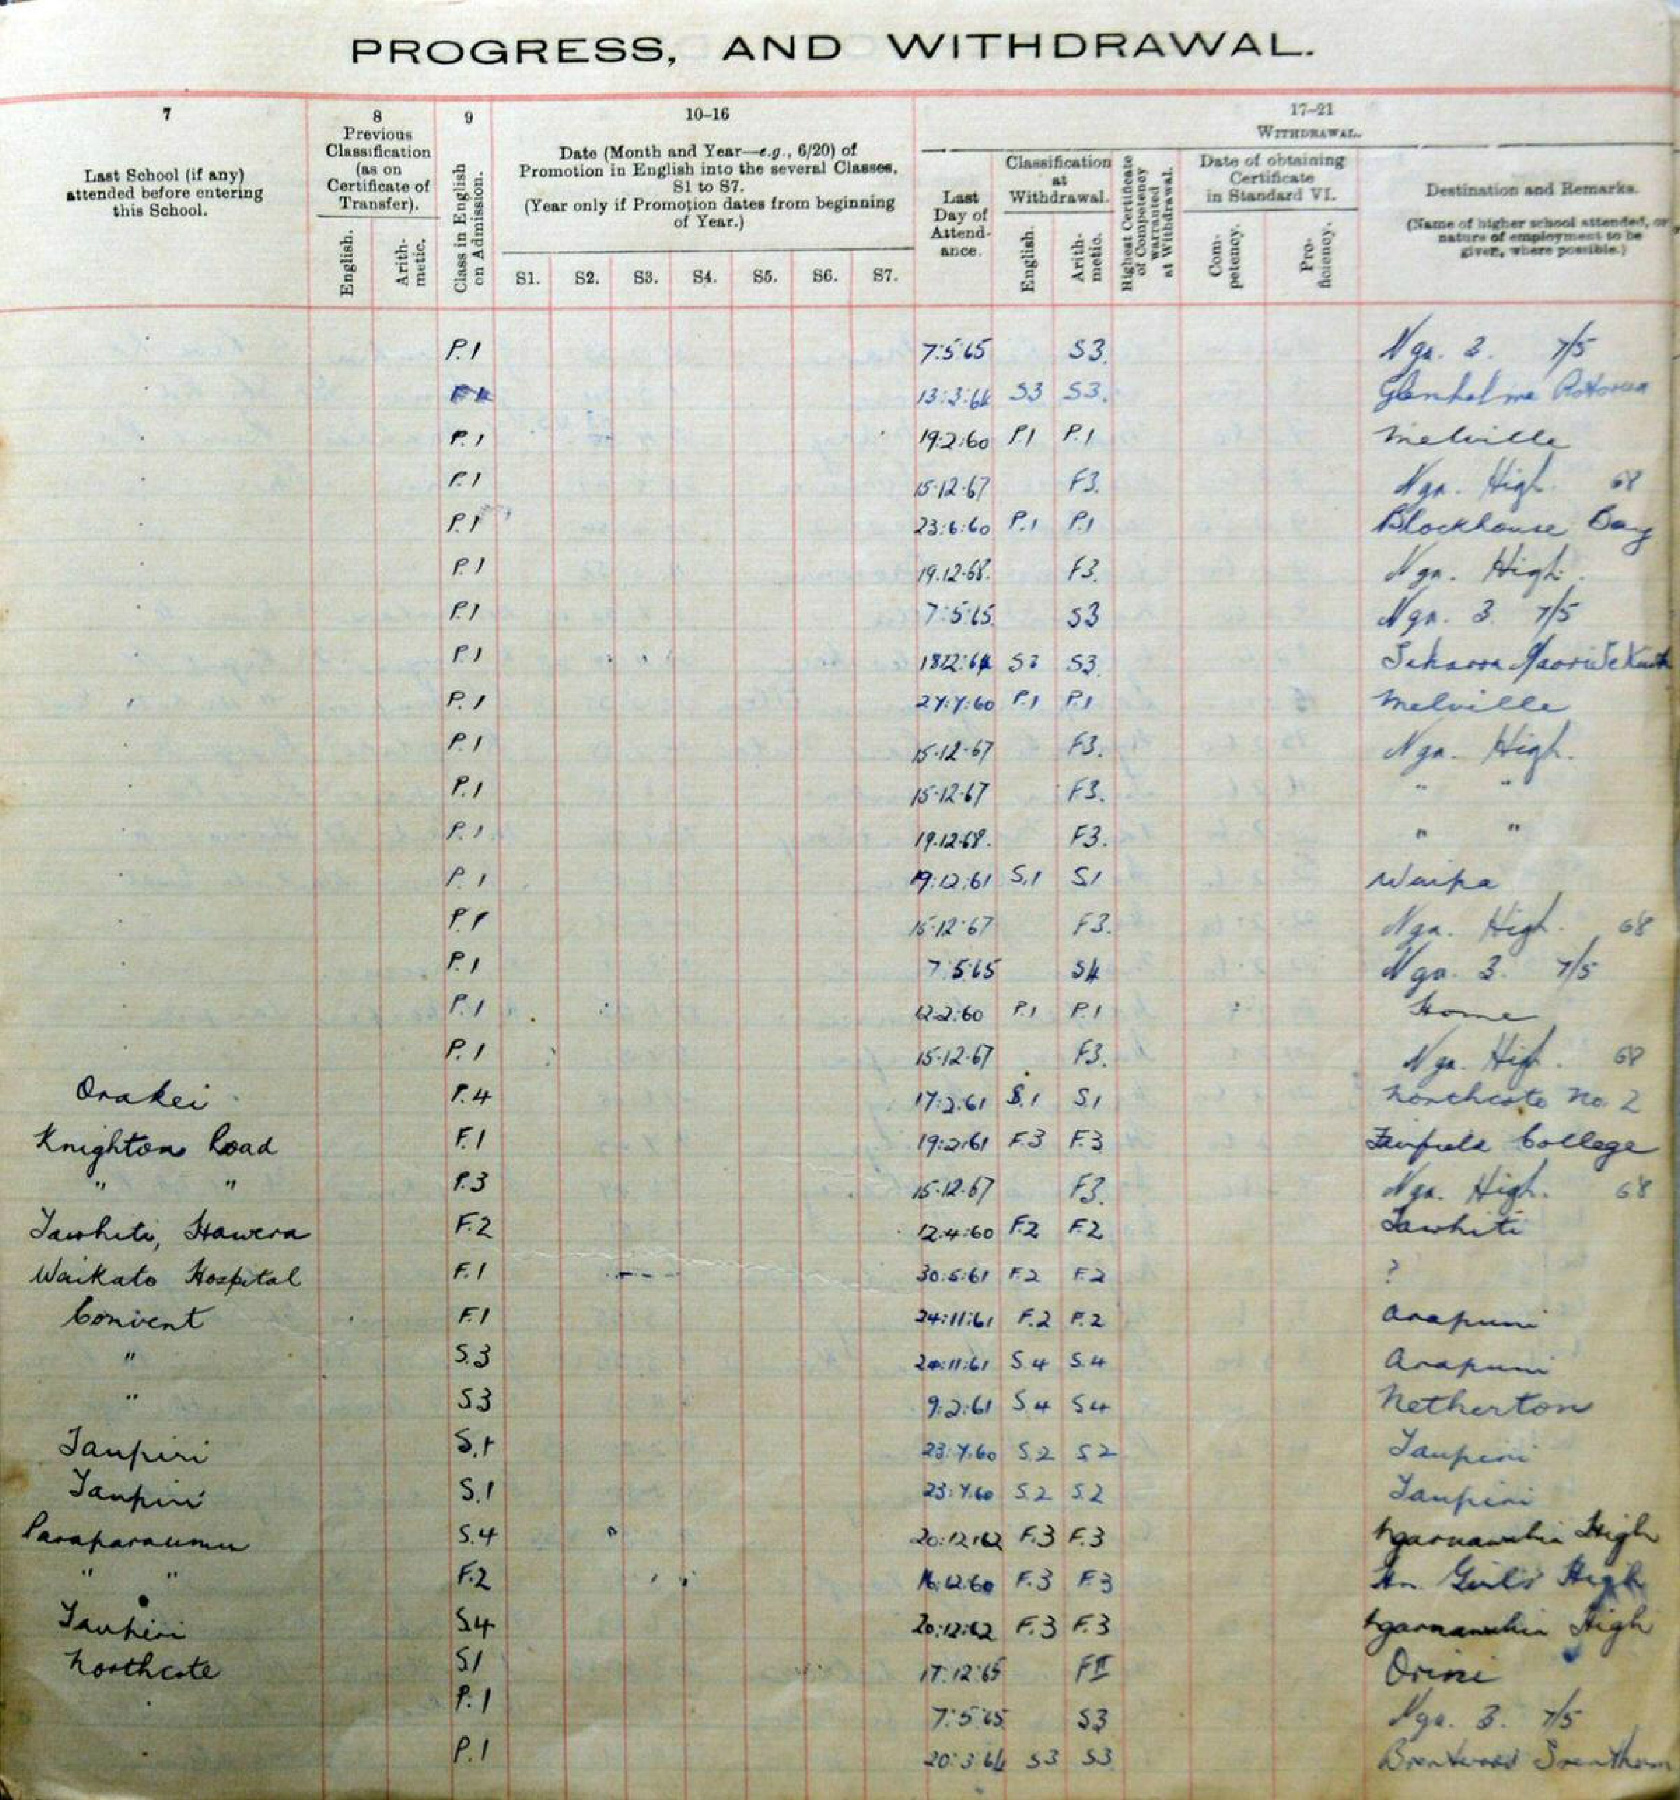 PROGRESS, AND WITHDRAWAL.
7
Last School (if any)
attended before entering
this School.
8
Previous
Classification
(as on
Certificate of
Transfer).
English.
Arith-
metic.
9
Class in English
on Admission.
10–16
Date (Month and Year—e.g., 6/20) of
Promotion in English into the several Classes,
S1 to S7.
(Year only if Promotion dates from beginning
of Year.)
S1. S2. S3. S4. S5. S6. S7.
17–21
WITHDRAWAL.
Last
Day of
Attend-
ance.
Classification
at
Withdrawal.
English.
Arith-
metic.
Highest Certificate
of Competency
warranted
at Withdrawal.
Date of obtaining
Certificate
in Standard VI.
Com-
petency.
Pro-
ficiency.
Destination and Remarks.
(Name of higher school attended, or
nature of employment to be
given, where possible.)
P.1 7:5:65 S3. Nga. 3. 7/5
13:3:64 S3 S3. Glenholme Rotorua
P.1 19:2:60 P1 P.1 Melville
P.1 15·12·67 F3. Nga. High. 68
P.1 23:6:60 P.1 P.1 Blockhouse Bay
P.1 19.12.68. F3. Nga. High.
P.1 7:5:65 S3 Nga. 3. 7/5
P.1 18:12:64 S3 S3.
P.1 27:7:60 P.1 P.1 Melville
P.1 15·12·67 F3. Nga. High.
P.1 15·12·67 F3. " "
P.1 19.12.68. F3. " "
P.1 19:12:61 S.1 S1 Waipa
P.1 15·12·67 F3. Nga. High. 68
P.1 7:5:65 S4 Nga. 3. 7/5
P.1 12:2:60 P.1 P.1 Home
P.1 15·12·67 F3. Nga. High. 68
Orakei P.4 17:2:61 S.1 S1 Northcote No. 2
Knighton Road F.1 19:2:61 F.3 F.3 Fairfield College
" " P.3 15·12·67 F3. Nga. High. 68
Tawhiti, Hawera F.2 12:4:60 F.2 F.2 Tawhiti
Waikato Hospital F.1 30:5:61 F.2 F.2 ?
Convent F.1 24:11:61 F.2 F.2 Arapuni
" S.3 24:11:61 S.4 S.4 Arapuni
" S3 9:2:61 S4 S4 Netherton
Taupiri S.1 23:7:60 S.2 S2 Taupiri
Taupiri S.1 23:7:60 S.2 S.2 Taupiri
Paraparaumu S.4 20:12:62 F.3 F.3 Ngaruawahia High
" " F.2 16:12:60 F.3 F.3 Hn. Girls' High
Taupiri S4 20:12:62 F.3 F.3 Ngaruawahia High
Northcote S1 17:12:65 FII Orini
P.1 7:5:65 S3 Nga. 3. 7/5
P.1 20:3:64 S3 S3 Brentwood Trentham